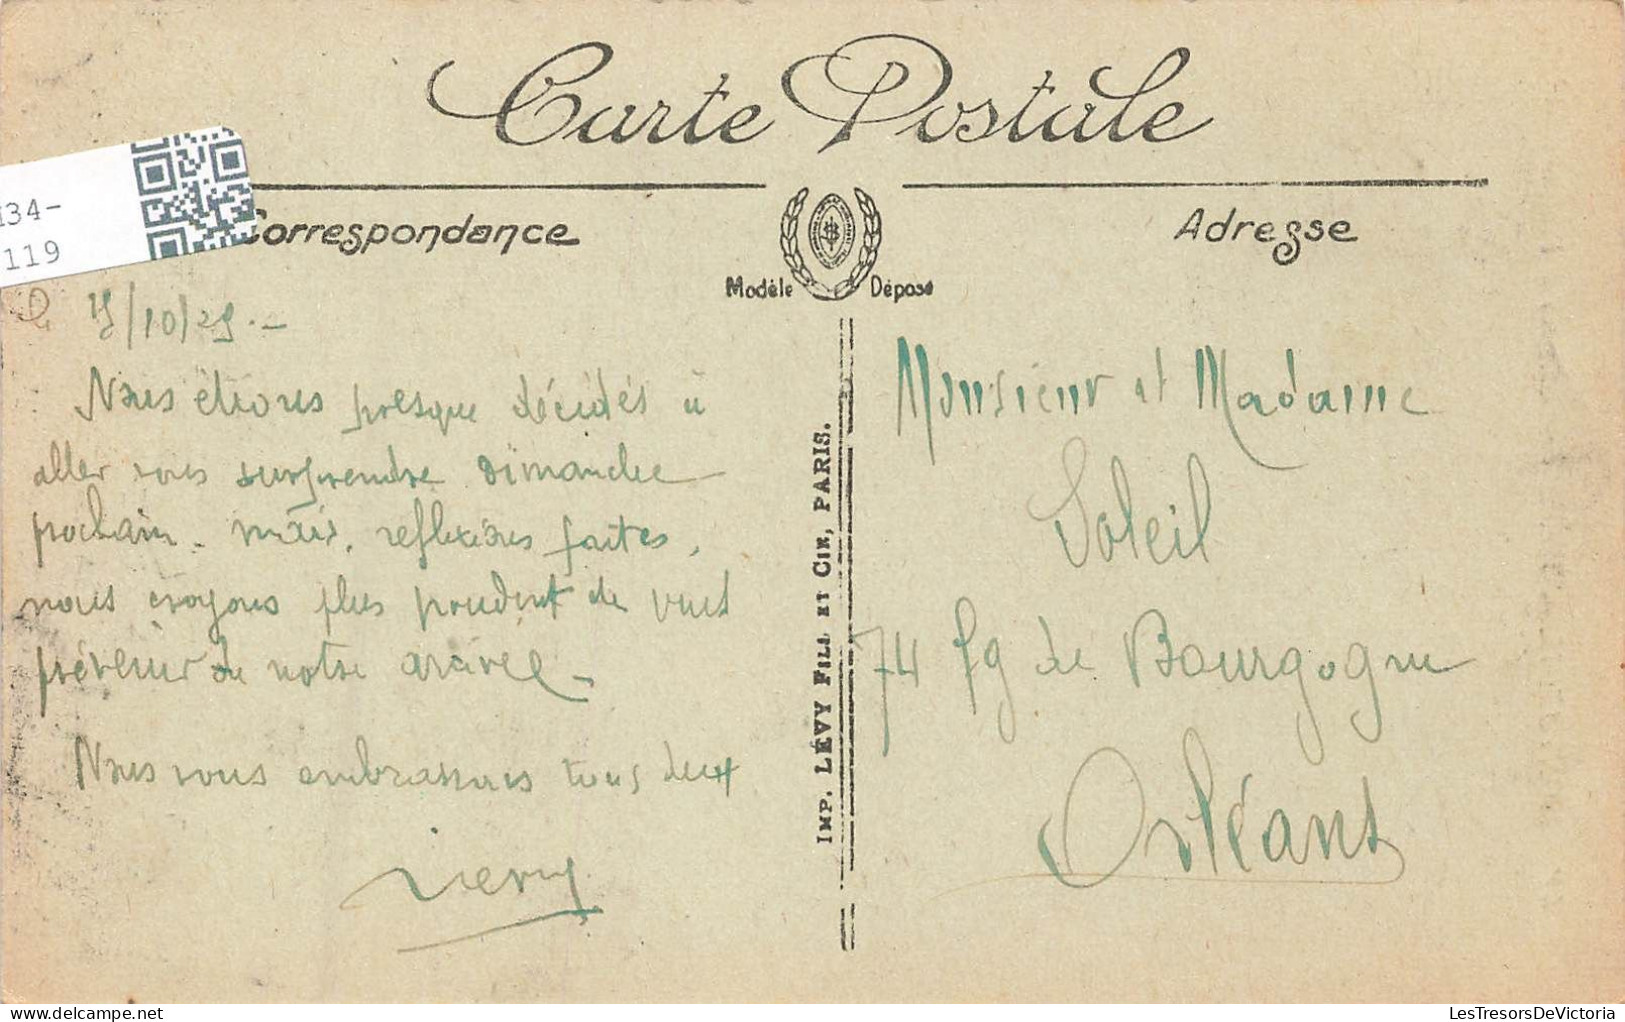 Carte Postale
134-
119
Correspondance
Adresse
Modèle Déposé
15/10/25.-
Nous étions presque décidés à
aller vous surprendre dimanche
prochain - mais, reflexions faites,
nous croyons plus prudent de vous
prévenir de notre arrivée -
Nous vous embrassons tous deux
IMP. LÉVY FILS ET CIE, PARIS.
Monsieur et Madame
Soleil
74 fg de Bourgogne
Orléans
LesTresorsDeVictoria.com
LesTresorsDeVictoria